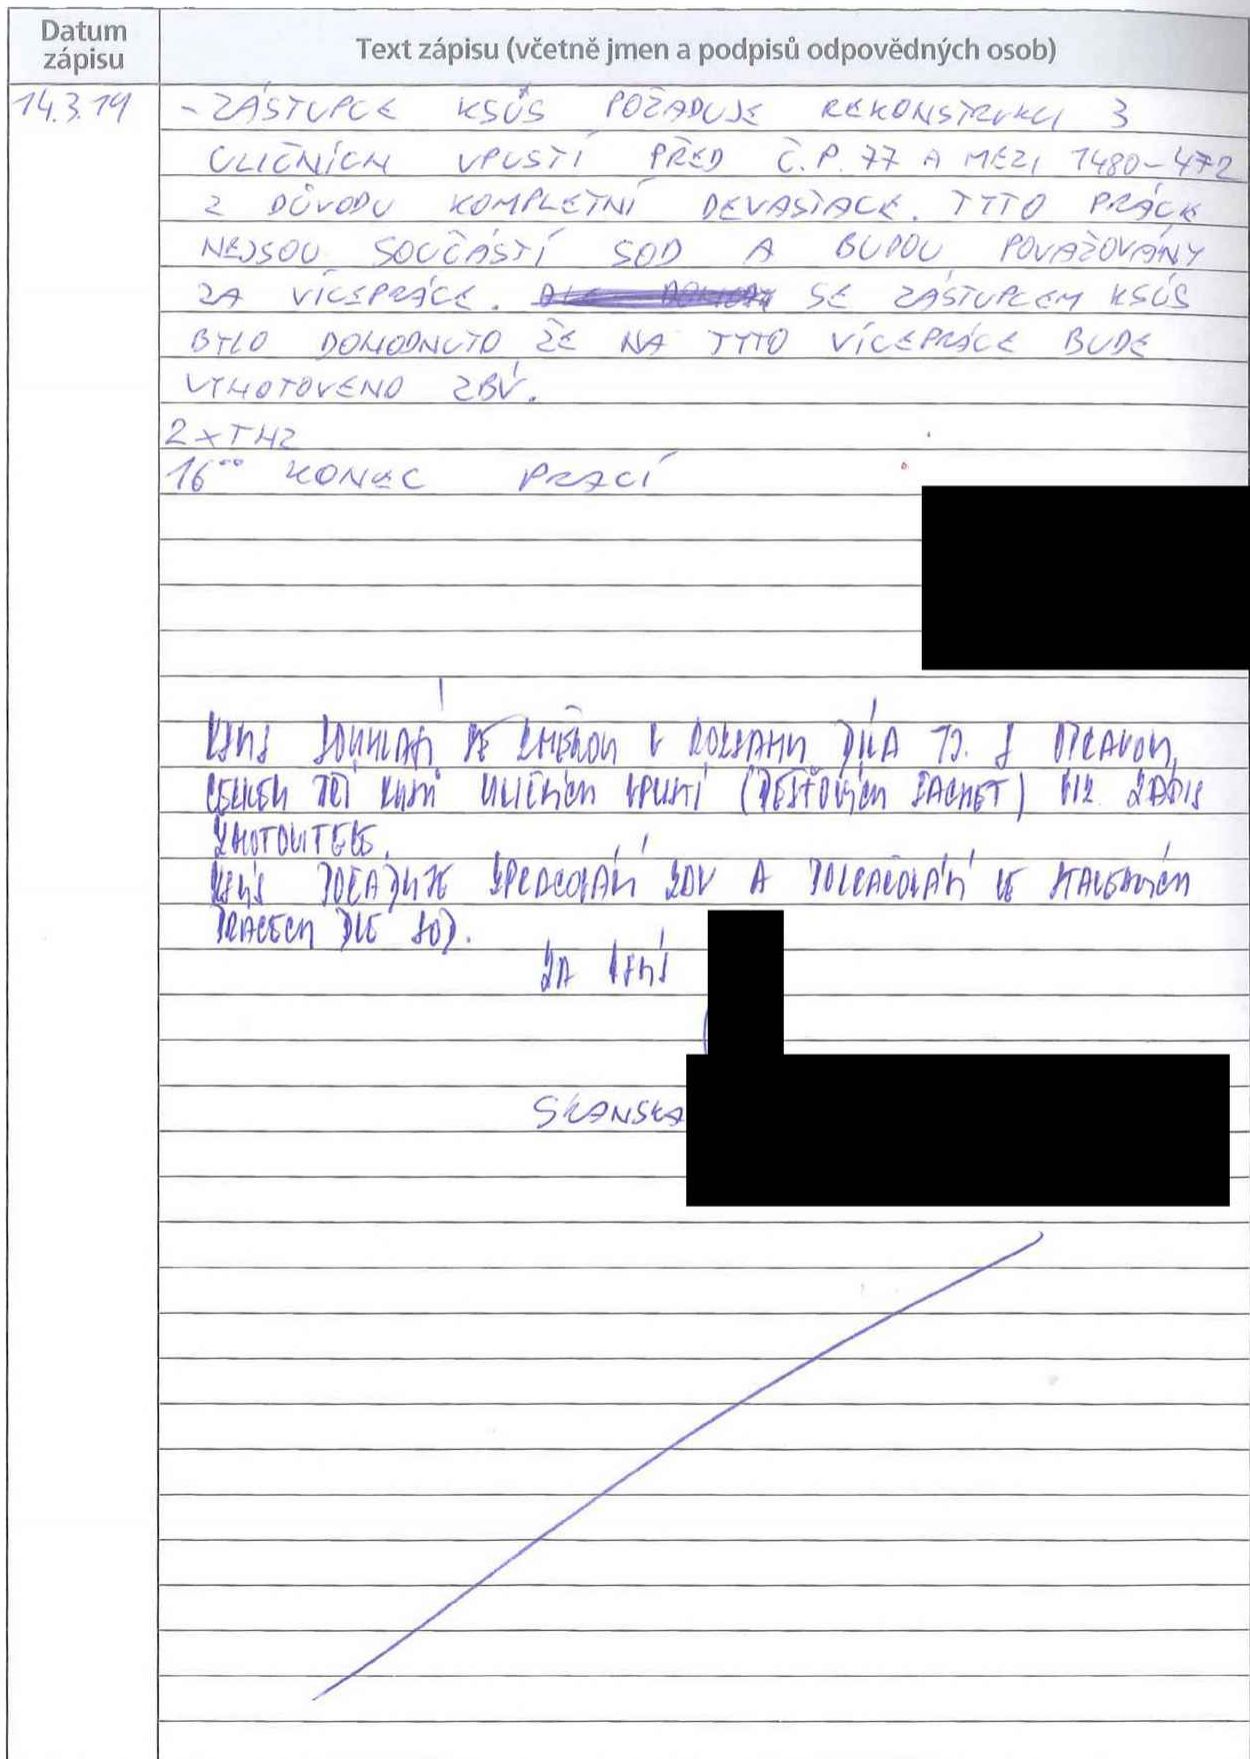 Datum zápisu
Text zápisu (včetně jmen a podpisů odpovědných osob)
14.3.19
- ZÁSTUPCE KSÚS POŽADUJE REKONSTRUKCI 3
ULIČNÍCH VPUSTÍ PŘED Č.P. 77 A MEZI 1480-472
Z DŮVODU KOMPLETNÍ DEVASTACE. TYTO PRÁCE
NEJSOU SOUČÁSTÍ SOD A BUDOU POVAŽOVÁNY
ZA VÍCEPRÁCE. SE ZÁSTUPCEM KSÚS
BYLO DOHODNUTO ŽE NA TYTO VÍCEPRÁCE BUDE
VYHOTOVENO ZBV.
2xTHZ
16°° KONEC PRACÍ
KSÚS SOUHLASÍ SE ZMĚNOU V ROZSAHU DÍLA TJ. S OPRAVOU
CELKEM TŘÍ KUSŮ ULIČNÍCH VPUSTÍ (DEŠŤOVÝCH ŠACHET) VIZ ZÁPIS
ZHOTOVITELE.
KSÚS POŽADUJE ZPRACOVÁNÍ ZBV A POKRAČOVÁNÍ VE STAVEBNÍCH
PRACECH DLE SOD.
ZA KSÚS
SKANSKA